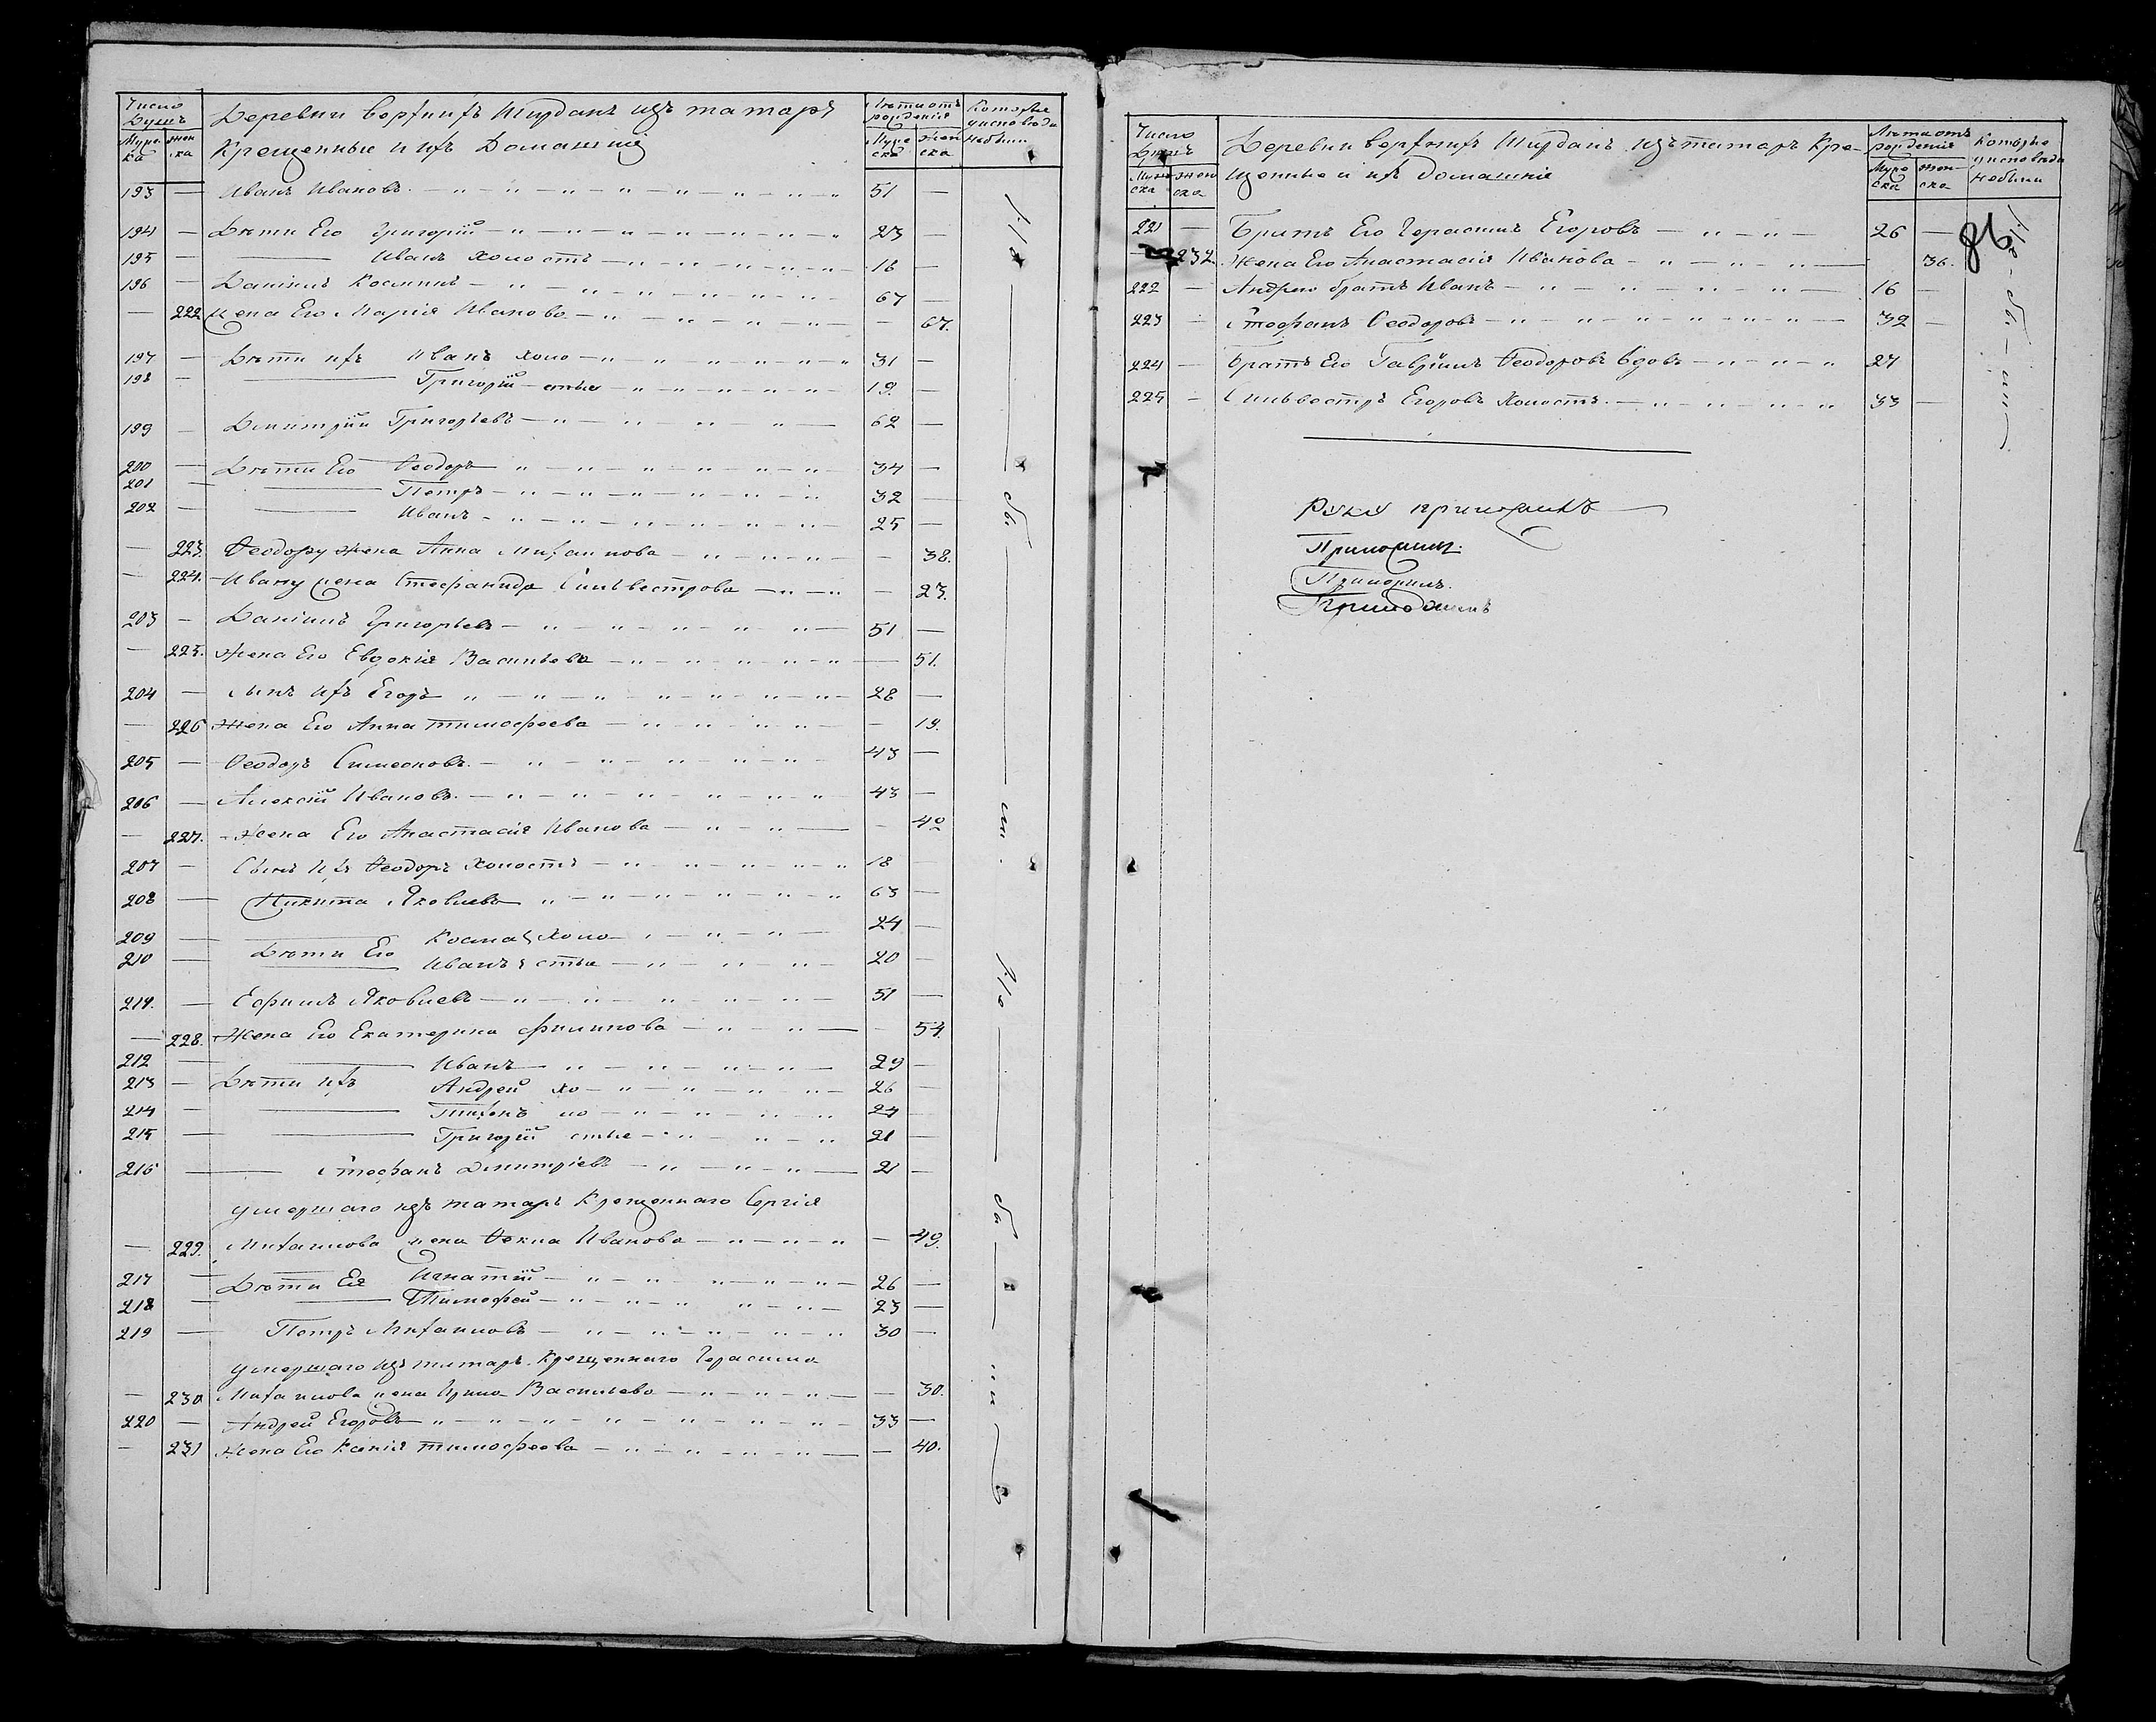 Число Душъ | Деревни верхнихъ Ширданъ изъ татаръ | Лѣта отъ рожденія | Которые
Муже ска | жен ска | Крещенные и ихъ Домашніе | Муже ска | жен ска | у исповѣди не были
193 — Иванъ Ивановъ 51 —
194 — Дѣти Его Григорій 23 —
195 — Иванъ холостъ 16 —
196 — Даніилъ Косминъ 67 —
— 222 жена Его Марія Иванова — 67.
197 — Дѣти ихъ Иванъ холо 31 —
198 — Григорій стые 19. —
199 — Димитрій Григорьевъ 62 —
200 — Дѣти Его Ѳеодоръ 34 —
201 — Петръ 32 —
202 — Иванъ 25 —
— 223. Ѳеодору жена Анна Михаилова — 38.
— 224. Ивану жена Стефанида Сильвестрова — 23.
203 — Даніилъ Григорьевъ 51 —
— 225. Жена Его Евдокія Васильева — 51.
204 — Сынъ ихъ Егоръ 28 —
— 226 Жена Его Анна тимофеева — 19.
205 — Ѳеодоръ Симеоновъ 43 —
206 — Алексій Ивановъ 43 —
— 227. Жена Его Анастасія Иванова — 42
207 — Сынъ Ихъ Ѳеодоръ Холостъ 18
208 — Никита Яковлевъ 63 —
209 — Косма холо 24 —
Дѣти Его
210 — Иванъ стые 20 —
211. — Ефимъ Яковлевъ 51 —
— 228. Жена Его Екатерина Филипова — 54.
212 — Иванъ 29 —
213 — Дѣти ихъ Андрей хо 26 —
214 — Тихонъ ло 24 —
215 — Григорій стые 21 —
216 — Стефанъ Димитріевъ 21 —
умершаго изъ татаръ Крещеннаго Сергія
— 229. Михаилова жена Ѳекла Иванова — 49.
217 — Дѣти Ея Игнатій 26 —
218 — Тимофей 23 —
219 — Петръ Михаиловъ 30 —
умершаго изъ татаръ Крещеннаго Герасима
— 230 Михаилова жена Ирина Васильева — 30.
220 — Андрей Егоровъ 33 —
— 231 Жена Его Ксенія тимофеева — 40.
Число Душъ | Деревни верхнихъ Ширданъ изъ татаръ Кре- | Лѣта отъ рожденія | Которые
Муже ска | жен ска | щенные и ихъ Домашніе | Муже ска | жен ска | у исповѣди не были
221 — Братъ Его Герасимъ Егоровъ 26 —
— 232. Жена Его Анастасія Иванова 36.
222 — Андрею братъ Иванъ 16 —
223 — Стефанъ Ѳеодоровъ 32 —
224 — Братъ Его Гавріилъ Ѳеодоровъ вдовъ 27
225 — Сильвестръ Егоровъ Холостъ. 33 —
Руку приложилъ
Приложилъ.
Приложилъ.
Приложилъ